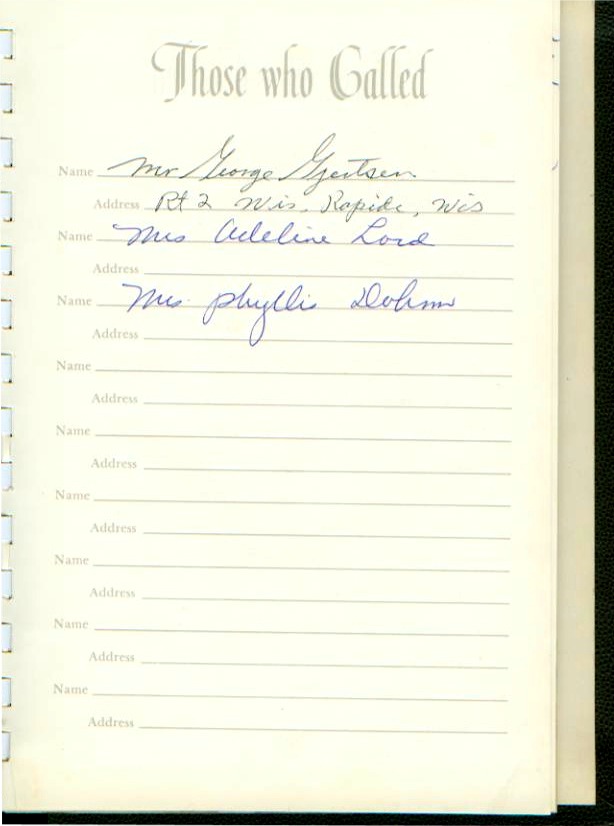 Those who Called
Name Mr George Gjertsen
Address Rt 2 Wis. Rapids, Wis
Name Mrs Adeline Lord
Address
Name Mrs. Phyllis Dohm
Address
Name
Address
Name
Address
Name
Address
Name
Address
Name
Address
Name
Address